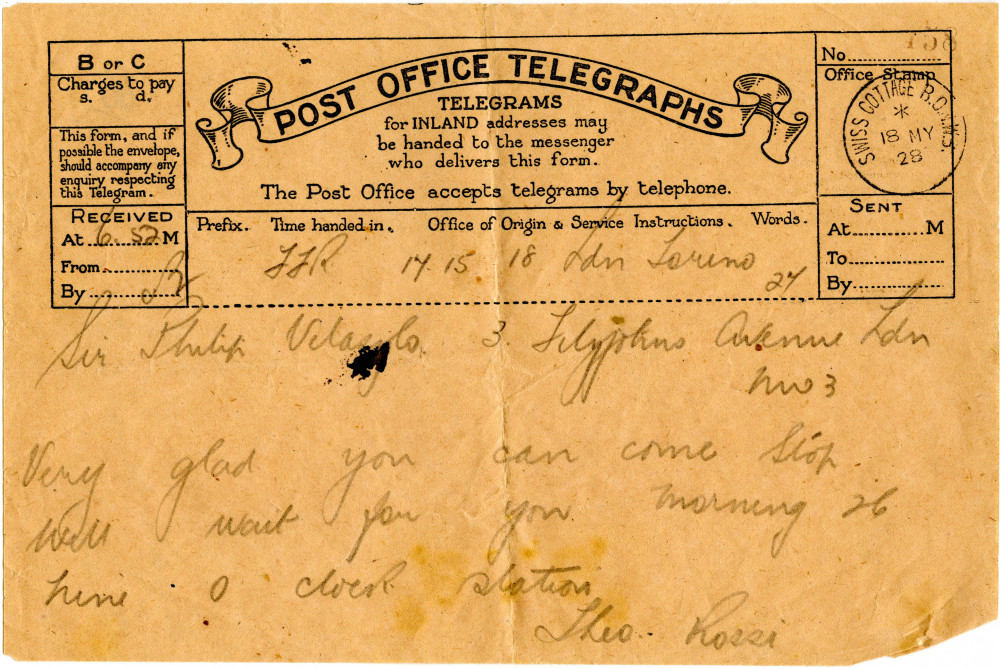 B or C
Charges to pay
s. d.
This form, and if
possible the envelope,
should accompany any
enquiry respecting
this Telegram.
RECEIVED
At 6.52 M
From
By
POST OFFICE TELEGRAPHS
TELEGRAMS
for INLAND addresses may
be handed to the messenger
who delivers this form.
The Post Office accepts telegrams by telephone.
Prefix. Time handed in. Office of Origin & Service Instructions. Words.
17.15 18 Ldn Torino
27
No.
Office Stamp
SWISS COTTAGE B.O. N.W.3.
*
18 MY
28
SENT
At M
To
By
Sir Philip 3 Avenue Ldn
NW3
Very glad you can come Stop
Will wait for you morning 26
nine O clock station
Theo Rossi